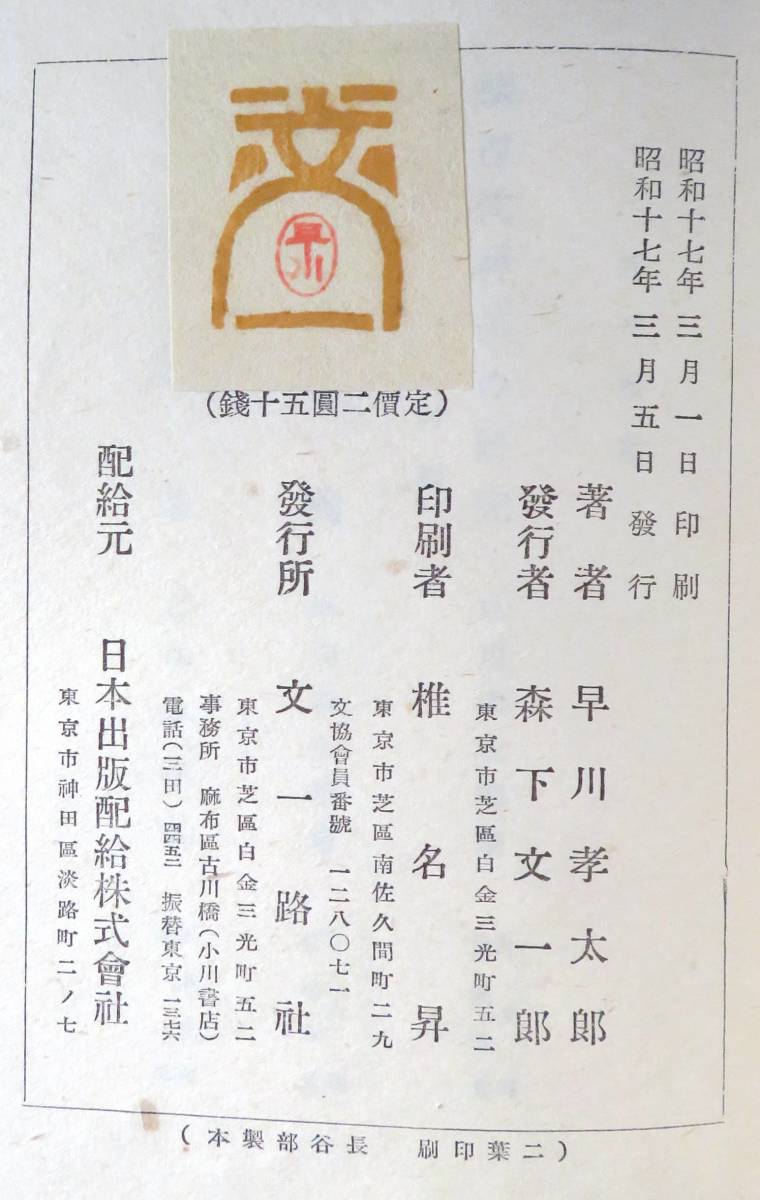 昭和十七年 三月一日 印刷
昭和十七年 三月五日 發行
(定價二圓五十錢)
著者 早川孝太郎
發行者 森下文一郎
東京市芝區白金三光町五二
印刷者 椎名昇
東京市芝區南佐久間町二九
文協會員番號 一二八〇七一
發行所 文一路社
東京市芝區白金三光町五二
事務所 麻布區古川橋(小川書店)
電話(三田)四四五二 振替東京 一三七六
配給元 日本出版配給株式會社
東京市神田區淡路町二ノ七
(二葉印刷 長谷部製本)
早川